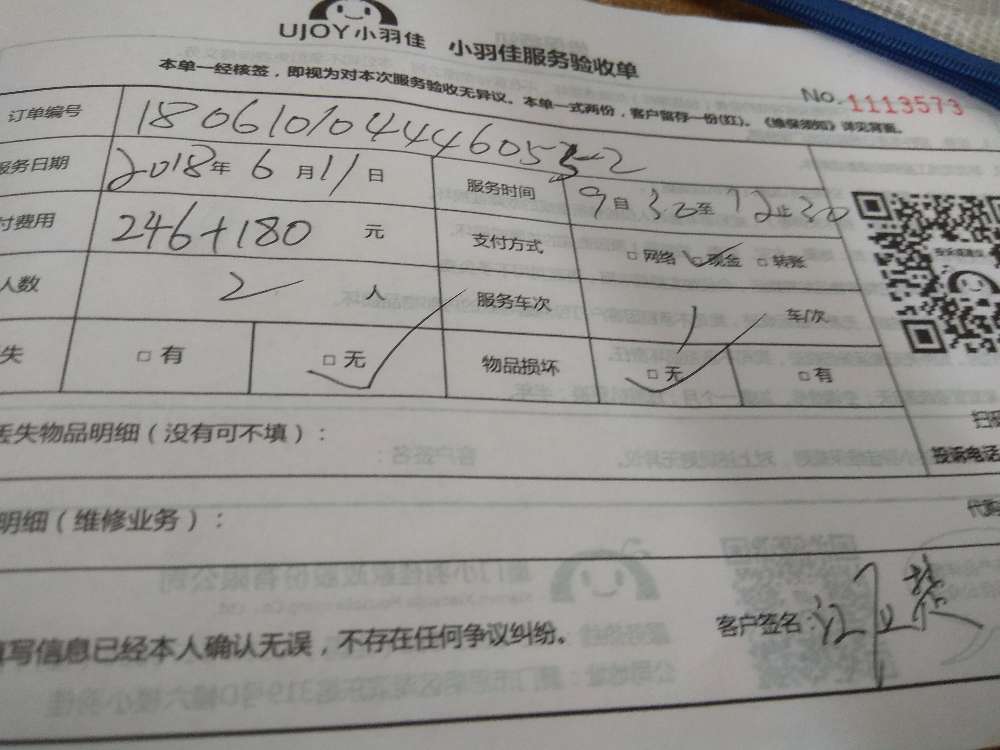 UJOY小羽佳 小羽佳服务验收单
本单一经核签，即视为对本次服务验收无异议。本单一式两份，客户留存一份(红)。《维保须知》详见背面。
No. 1113573
订单编号 18061010444605
服务日期 2018年6月11日 服务时间 9自30至12止30
付费用 246+180 元 支付方式 □网络 □现金 □转账
人数 2 人 服务车次 1 车/次
失 □有 □无 物品损坏 □无 □有
丢失物品明细（没有可不填）：
投诉电话
明细（维修业务）：
填写信息已经本人确认无误，不存在任何争议纠纷。
客户签名：